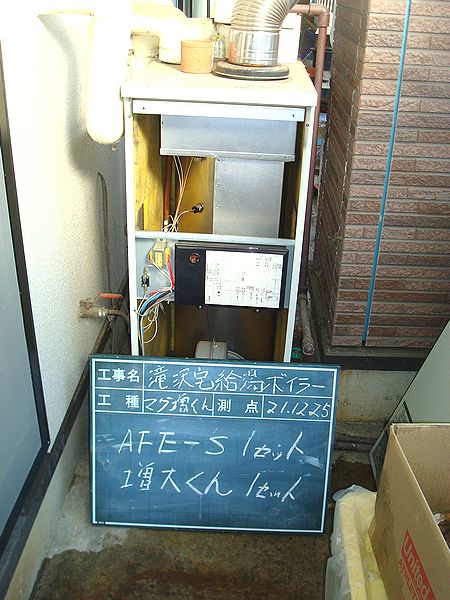 工事名 滝沢宅給湯ボイラー
工種 マグ増くん 測点 21.12.25
AFE-S 1セット
増大くん 1セット
United